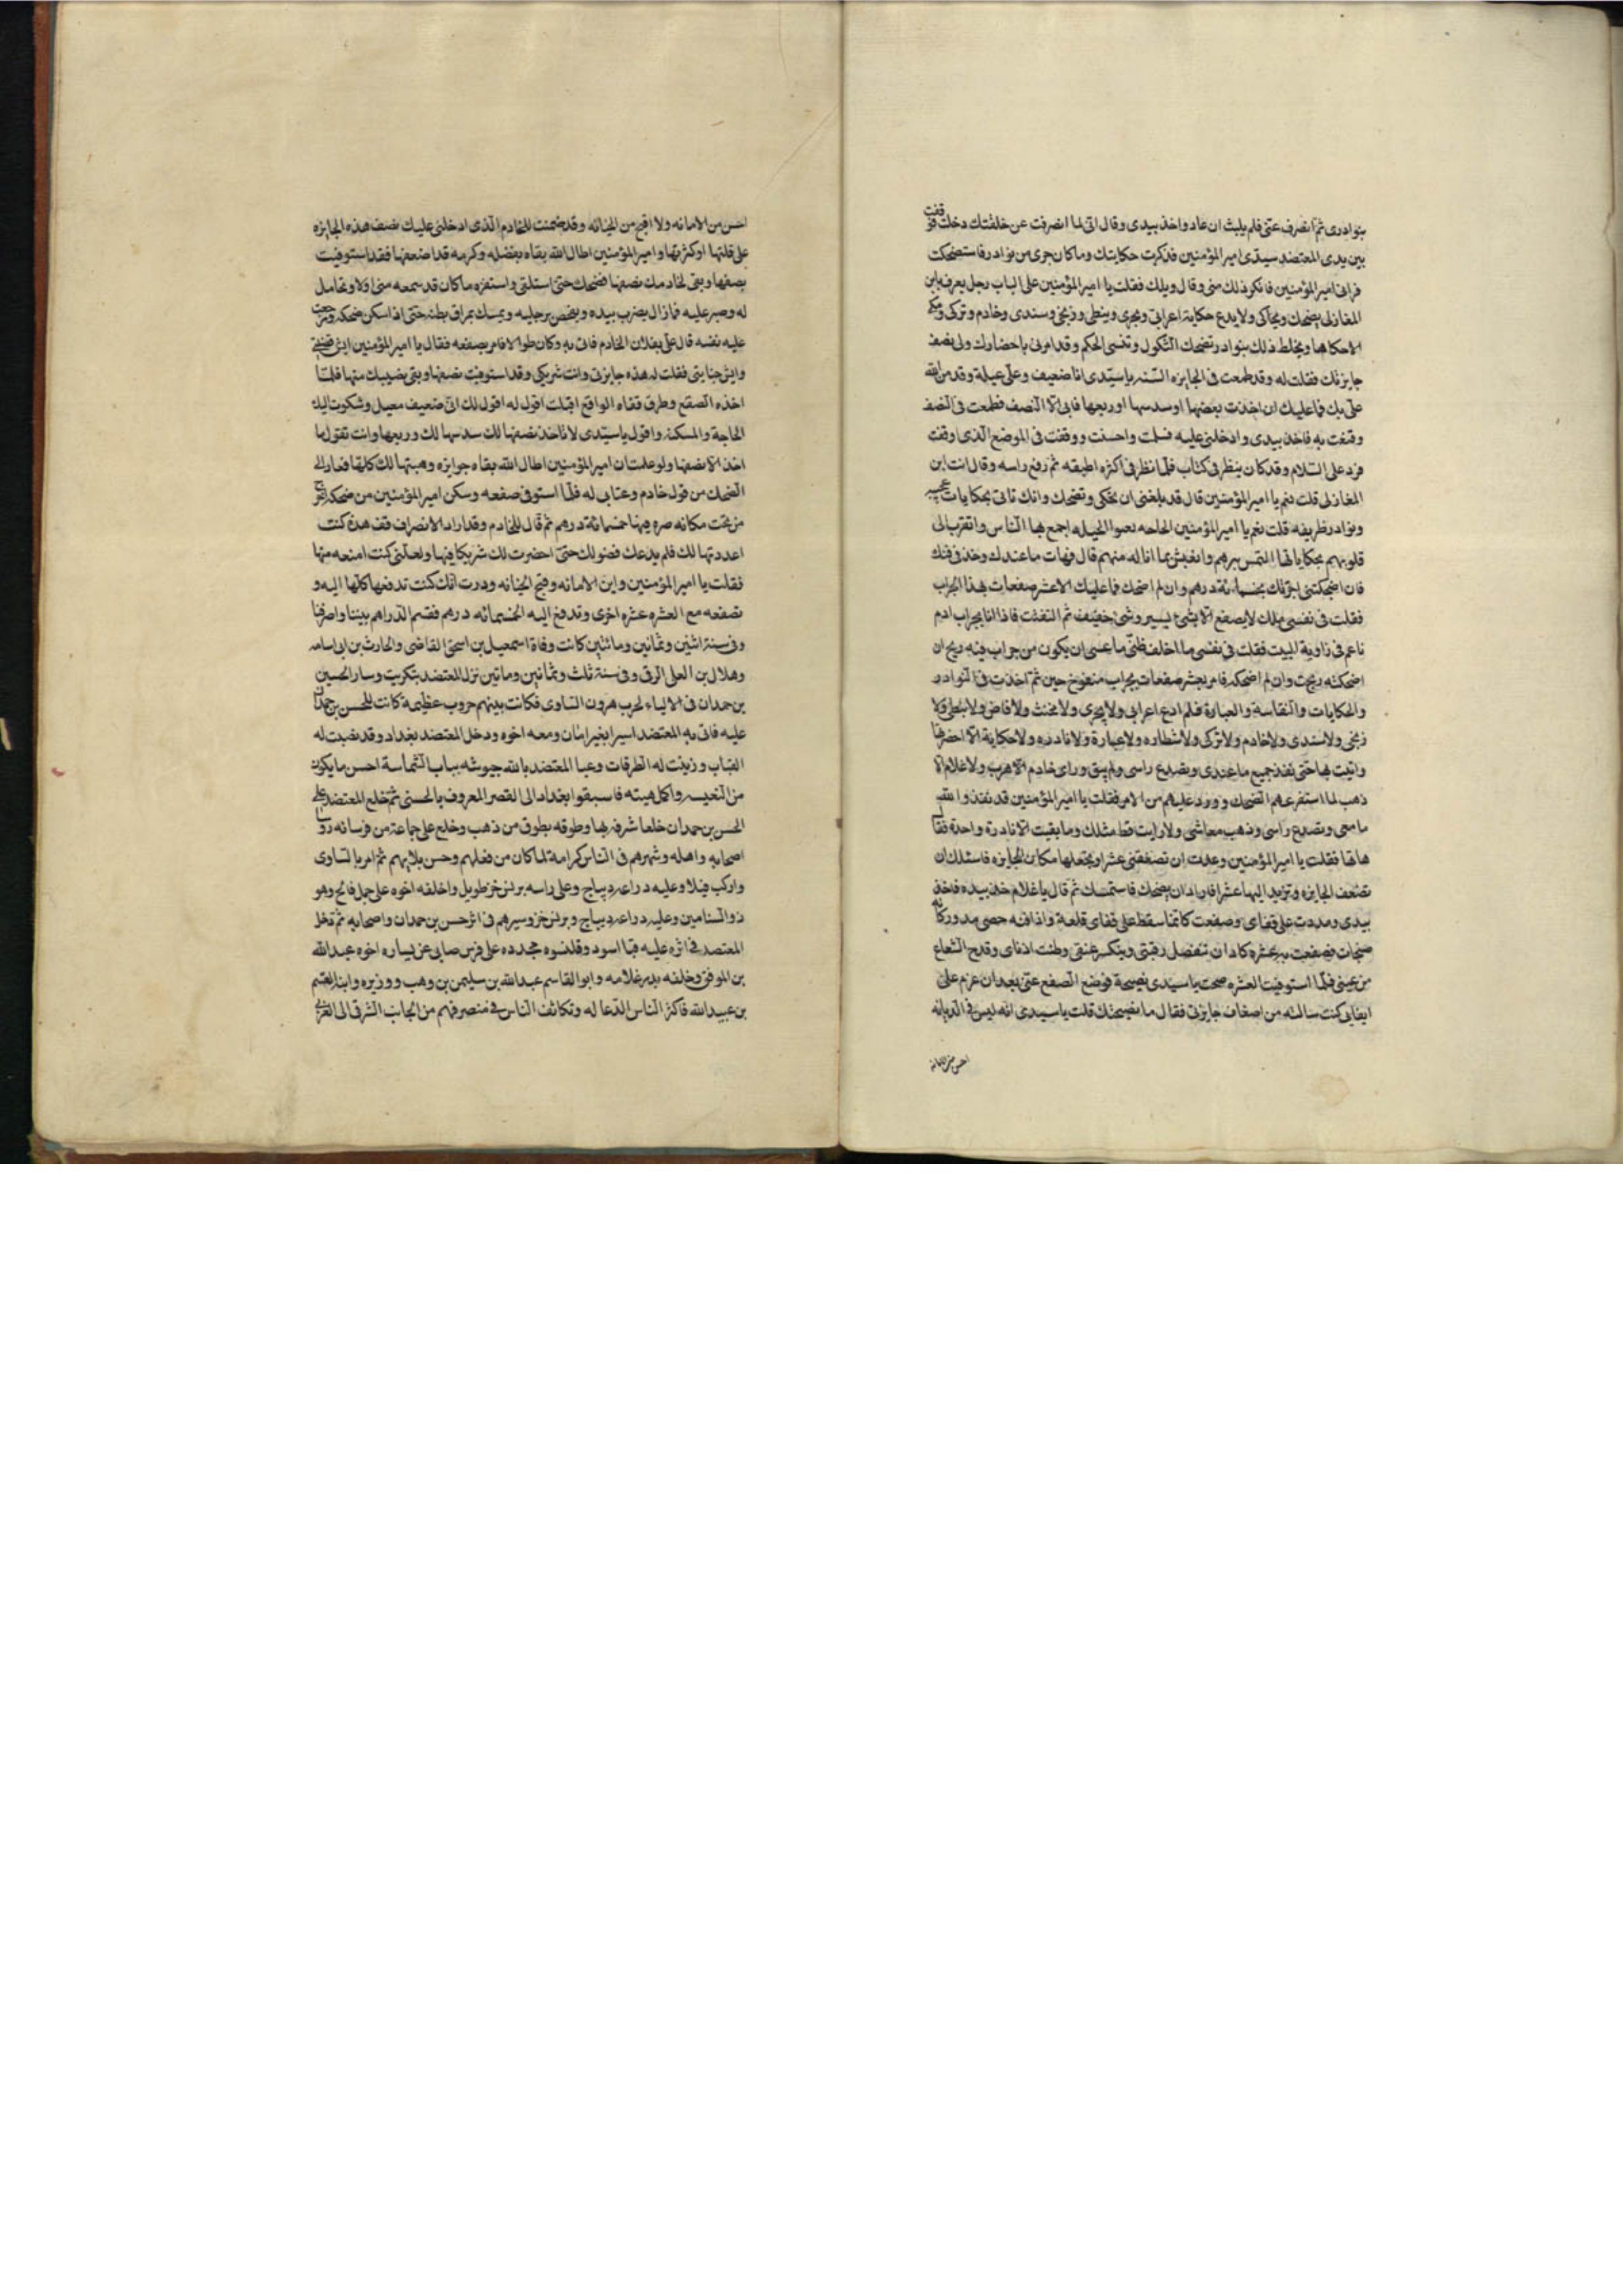 بنوادرى ثم انصرف عنى فلم يلبث ان عاد واخذ بيدى وقال انى لما انصرفت عن خلفتك دخلت فوقفت
بين يدى المعتضد سيدى امير المؤمنين فذكرت حكايتك وما كان جرى من نوادر فاستضحكت
فرانى امير المؤمنين فانكر ذلك منى وقال ويلك فقلت يا امير المؤمنين على الباب رجل يعرف بابن
المغازلى يضحك ويحاكى ولا يدع حكاية اعرابى ونجدى ونبطى وزنجى وسندى وخادم وتركى ومكى
الا حكاها ويخلط ذلك بنوادر تضحك الثكول وتنسى الحكم وقد امرنى باحضارك ولى نصف
جايزتك فقلت له وقد طمعت فى الجايزه السنيه يا سيدى انا ضعيف وعلى عيلة وقد من الله
على بك فما عليك ان اخذت بعضها او سدسها او ربعها فابى الا النصف فطمعت فى النصف
وقنعت به فاخذ بيدى وادخلنى عليه فسلمت واحسنت ووقفت فى الموضع الذى وقفت
فرد على السلام وقد كان ينظر فى كتاب فلما نظر فى اكثره اطبقه ثم رفع راسه وقال انت ابن
المغازلى قلت نعم يا امير المؤمنين قال قد بلغنى ان تحكى وتضحك وانك تاتى بحكايات عجيبه
ونوادر ظريفه قلت نعم يا امير المؤمنين الحاجه الحيله اجمع بها الناس واتقرب الى
قلوبهم بحكاياتها التمس برهم وانعيش بما اناله منهم قال فهات ما عندك وخذ فى فنك
فان اضحكتنى اجزتك بخمسمائة درهم وان لم اضحك فما عليك الا عشر صفعات بهذا الجراب
فقلت فى نفسى ملك لا يصفع الا بشئ يسير وشئ خفيف ثم التفت فاذا انا بجراب ادم
ناعم فى زاوية البيت فقلت فى نفسى ما اخلف ظنى ما عسى ان يكون من جراب فيه ريح ان
اضحكته ربحت وان لم اضحكه فامر بعشر صفعات بجراب منفوخ حين ثم اخذت فى النوادر
والحكايات والنقاسة والعبارة فلم ادع اعرابى ولا نجدى ولا مخنث ولا قاض ولا نبطى ولا
زنجى ولا سندى ولا خادم ولا تركى ولا شطاره ولا عبارة ولا نادره ولا حكاية الا احضرتها
واتيت بها حتى نفد جميع ما عندى وتصدع راسى ولم يبق وراى خادم الا هرب ولا غلام الا
ذهب لما استفزعهم الضحك وورد عليهم من الامر فقلت يا امير المؤمنين قد نفذ والله
ما معى وتصدع راسى وذهب معاشى ولا رايت قط مثلك وما بقيت الا نادرة واحدة فقال
هاتها فقلت يا امير المؤمنين وعدت ان تصفعنى عشرا وتجعلها مكان الجايزه فاسئلك ان
تضعف الجايزه وتزيد اليها عشرا فاراد ان يضحك فاستمسك ثم قال يا غلام خذ بيده فاخذ
بيدى ومددت على قفاى وصفعت كانما سقط على قفاى قلعة واذا فيه حصى مدور كانه
صنجات فصفعت به عشره كاد ان تنفصل رقبتى وينكسر عنقى وطنت اذناى وقدح الشعاع
من عينى فلما استوفيت العشره صحت يا سيدى نصيحة فرفع الصفع عنى بعد ان عزم على
ايفايى كنت سالته من اضعاف جايزتى فقال ما نصيحتك قلت يا سيدى انه ليس فى الديانه
احسن من الامانه
احسن من الامانه ولا اقبح من الخيانه وقد ضمنت للخادم الذى ادخلنى عليك نصف هذه الجايزه
على قلتها او كثرتها وامير المؤمنين اطال الله بقاه بفضله وكرمه قد اضعفها فقد استوفيت
نصفها وبقى لخادمك نصفها فضحك حتى استلقى واستفزه ما كان قد سمعه منى اولا وتحامل
له وصبر عليه فما زال يضرب بيده ويفحص برجليه ويمسك بمراق بطنه حتى اذا سكن ضحكه ورجعت
عليه نفسه قال على بفلان الخادم فاتى به وكان طوالا فامر بصفعه فقال يا امير المؤمنين ايش قضيتى
وايش جنايتى فقلت له هذه جايزتى وانت شريكى وقد استوفيت نصفها وبقى نصيبك منها فلما
اخذه الصفع وطرق قفاه الواقع اقبلت اقول له اقول لك انى ضعيف معيل وشكوت اليك
الحاجة والمسكنه واقول يا سيدى لا تاخذ نصفها لك سدسها لك وربعها وانت تقول ما
اخذ الا نصفها ولو علمت ان امير المؤمنين اطال الله بقاه جوايزه وهبتها لك كلها فعاد الى
الضحك من قول خادم وعتابى له فلما استوفى صفعه وسكن امير المؤمنين من ضحكه اخرج
من تحت مكانه صره فيها خمسمائة درهم ثم قال للخادم وقد اراد الانصراف قف هذه كنت
اعددتها لك فلم يدعك فضولك حتى احضرت لك شريكا فيها ولعلنى كنت امنعه منها
فقلت يا امير المؤمنين واين الامانه وقبح الخيانه وددت انك كنت تدفعها كلها اليه و
تصفعه مع العشره عشره اخرى وتدفع اليه الخمسمائه درهم فقسم الدراهم بيننا وانصرفنا
وفى سنة اثنين وثمانين ومائتين كانت وفاة اسمعيل بن اسحق القاضى والحارث بن ابى اسامه
وهلال بن العلى الرقى وفى سنة ثلث وثمانين وماتين نزل المعتضد بتكريت وسار الحسين
بن حمدان فى الاولياء لحرب هرون الشاوى فكانت بينهم حروب عظيمة كانت للحسن بن حمدان
عليه فاتى به المعتضد اسيرا بغير امان ومعه اخوه ودخل المعتضد بغداد وقد نصبت له
القباب وزينت له الطرقات وعبا المعتضد بالله جيوشه بباب الشماسة احسن ما يكون
من التعبيه واكمل هيئه فاسبقوا بغداد الى القصر المعروف بالحسنى ثم خلع المعتضد على
الحسن بن حمدان خلعا شرفه بها وطوقه بطوق من ذهب وخلع على جماعة من فرسانه روسا
اصحابه واهله وشهرهم فى الناس كرامة لما كان من فعلهم وحسن بلايهم ثم امر بالشاوى
واركب فيلا وعليه دراعه ديباج وعلى راسه برنس خز طويل واخلفه اخوه على جمل فالج وهو
ذو السنامين وعليه دراعه ديباج وبرنس خز وسيرهم فى اثر حسن بن حمدان واصحابه ثم دخل
المعتضد فى اثره عليه قبا اسود وقلنسوه محدده على فرس صابى عن يساره اخوه عبد الله
بن الموفق وخلفه بدر غلامه وابو القاسم عبد الله بن سليمن بن وهب ووزيره وابنه القسم
بن عبيد الله فاكثر الناس الدعا له وتكاثف الناس فى منصرفهم من الجانب الشرقى الى الغربى